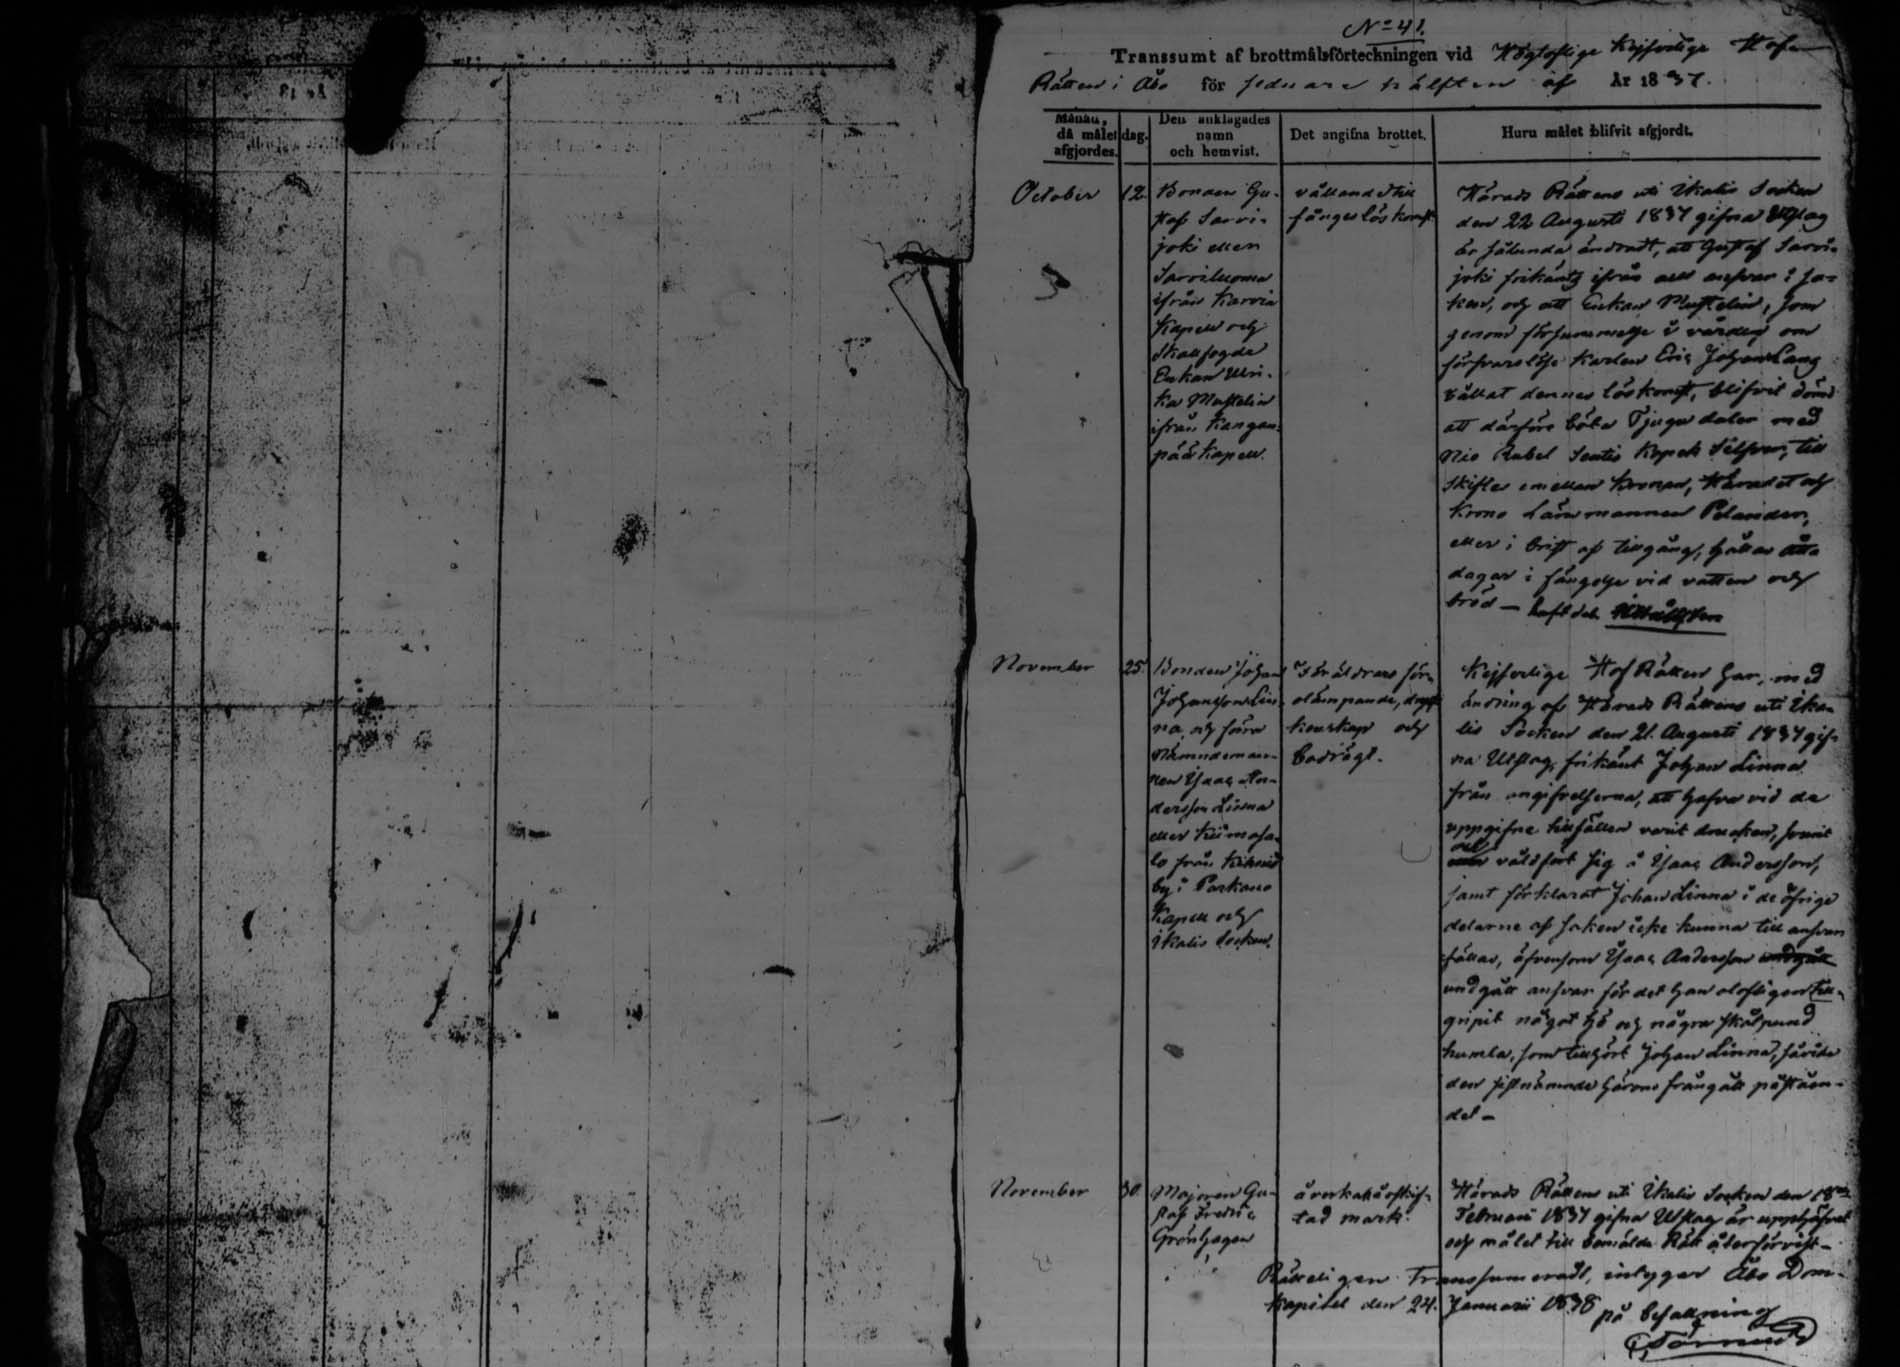 No 41.
Transsumt af brottmålsförteckningen vid Högloflige Kejserlige Hof-
Rätten i Åbo för sednare hälften af År 1837.
Månan, då målet afgjordes.
dag.
Den anklagades namn och hemvist.
Det angifna brottet.
Huru målet blifvit afgjordt.
October
12.
Bonden Gu-
staf Sarvi-
joki eller
Sarviluoma
ifrån Karvia
Kapell och
Skallfogde
Enkan Ulri-
ka Mustelin
ifrån Kangan-
pää Kapell.
vållande till
fånges löskomst
Härads Rättens uti Ikalis Socken
den 22 Augusti 1837 gifna Utslag
är sålunda ändradt, att Gustaf Sarvi-
joki frikänts ifrån allt ansvar i sa-
ken, och att Enkan Mustelin, som
genom försummelse i vården om
försvarslöse Karlen Eric Johan Lang
vållat dennes löskomst, blifvit dömd
att därföre böta Tjugu daler med
Nio Rubel Sextio Kopek Silfver, till
skiftes emellan Kronan, Häradet och
Krono Länsmannen Pelander,
eller i brist af tillgång, hållas åtta
dagar i fängelse vid vatten och
bröd —
November
25.
Bonden Johan
Johansson Lin-
na, och förra
Nämndeman-
nen Isaac An-
dersson Linna
eller Kiimasa-
lo från
by i Parkano
Kapell och
Ikalis Socken.
Föräldrars för-
olämpande, dryc-
kenskap och
bedrägl.
Kejserlige Hof Rätten har, med
ändring af Härads Rättens uti Ika-
lis Socken den 21. Augusti 1837 gif-
na Utslag, frikänt Johan Linna
från angifvelserna, att hafva vid de
uppgifne tillfällen varit drucken, samt
våldfört sig å Isaac Andersson,
samt förklarat Johan Linna i de öfrige
delarne af saken icke kunna till ansvar
fällas, äfvensom Isaac Andersson undgått
undgått ansvar för det han olofligen till-
gripit något hö och några skålpund
humla, som tillhört Johan Linna, såvida
den sistnämnde härom frångått påståen-
det —
November
30.
Majoren Gu-
staf Fredric
Grönhagen
åverkan å oskif-
tad mark.
Härads Rättens uti Ikalis Socken den 18de
Februarii 1837 gifna Utslag är upphäfvet
och målet till bemälde Rätt återförvist —
Rätteligen Transsumeradt, intygar Åbo Dom-
kapitel den 24. Januarii 1838
på befallning